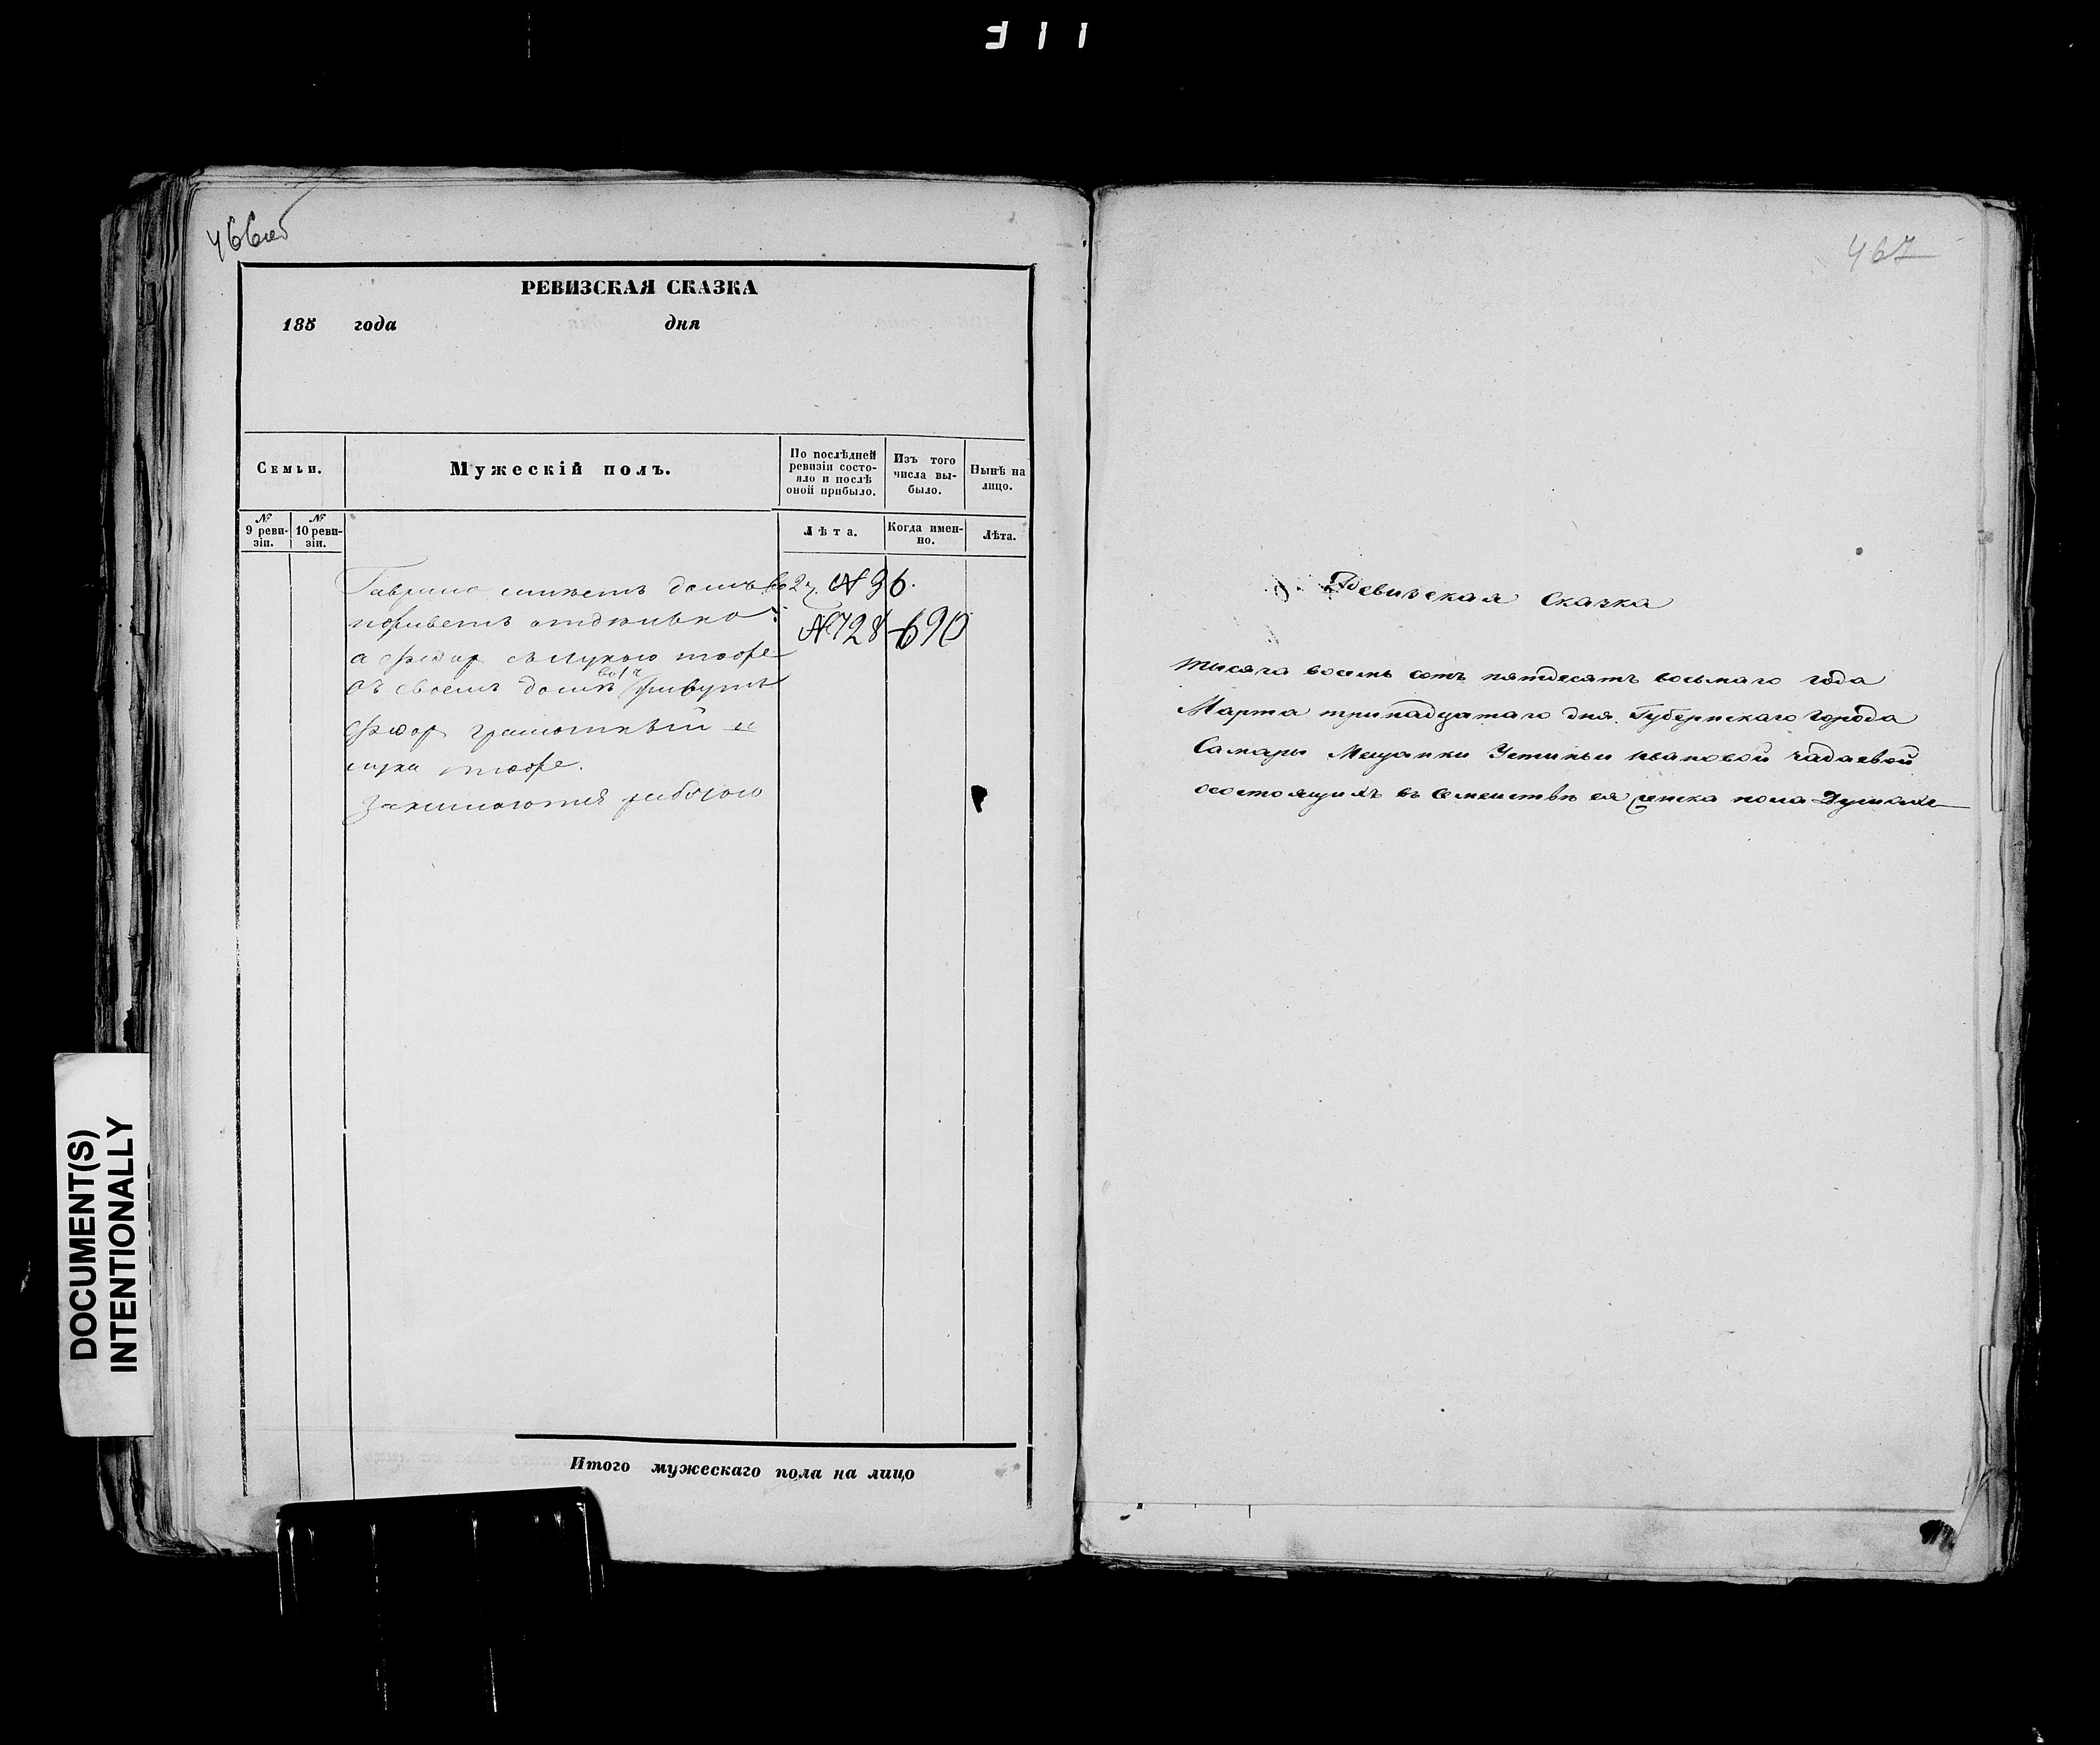 466об
РЕВИЗСКАЯ СКАЗКА
185 года дня
Семьи.
Мужескій полъ.
По послѣдней ревизіи состо-
яло и послѣ оной прибыло.
Изъ того числа вы-
было.
Нынѣ на лицо.
№ 9 реви-
зіи.
№ 10 реви-
зіи.
Лѣта.
Когда имен-
но.
Лѣта.
Гаврило имѣетъ домъ во 2 ч. № 96.
№ 728-690
а Федоръ съ Лукою тоже
въ своемъ домѣ во 1 ч живутъ
Федоръ грамотный и
Лука тоже.
занимаются работою
Итого мужескаго пола на лицо
DOCUMENT(S)
INTENTIONALLY
467
Ревизская Сказка
тысяча восемь сотъ пятдесятъ восьмаго года
Марта тринадцатаго дня Губернскаго города
Самары Мещанки Устиньи Ивановой Чадаевой
о состоящихъ въ семействѣ ея женска пола Душахъ